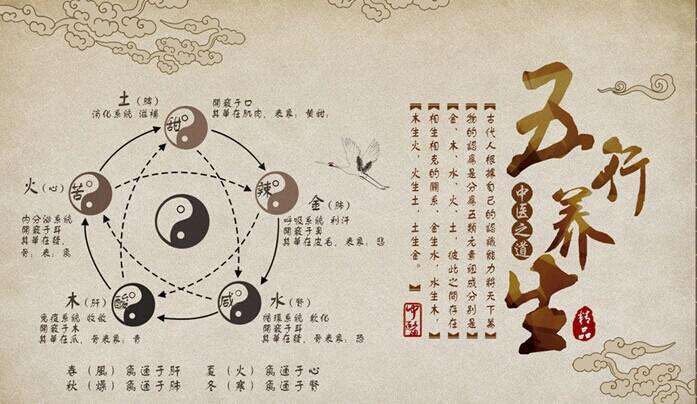 五行养生
中医之道
精品
古代人根據自己的認識能力將天下萬
物的認爲是分爲五類元素組成分别是
金、木、水、火、土，彼此之間存在
相生相克的關系，金生水，水生木，
木生火，火生土，土生金。
土（脾）
消化系統 滋補
開竅于口
其華在肌肉，表象：黄甜；
甜
火（心）
内分泌系統
開竅于耳
其華在發，
骨；表：
苦
辣
金（肺）
呼吸系統 利汗
開竅于鼻
其華在皮毛，表象：悲
木（肝）
免疫系統 收斂
開竅于木
其華在爪，骨表象；青
酸
咸
水（腎）
循環系統 軟化
開竅于耳
其華在發，骨表象；恐
春（風）氣通于肝
夏（火）氣通于心
秋（燥）氣通于肺
冬（寒）氣通于腎